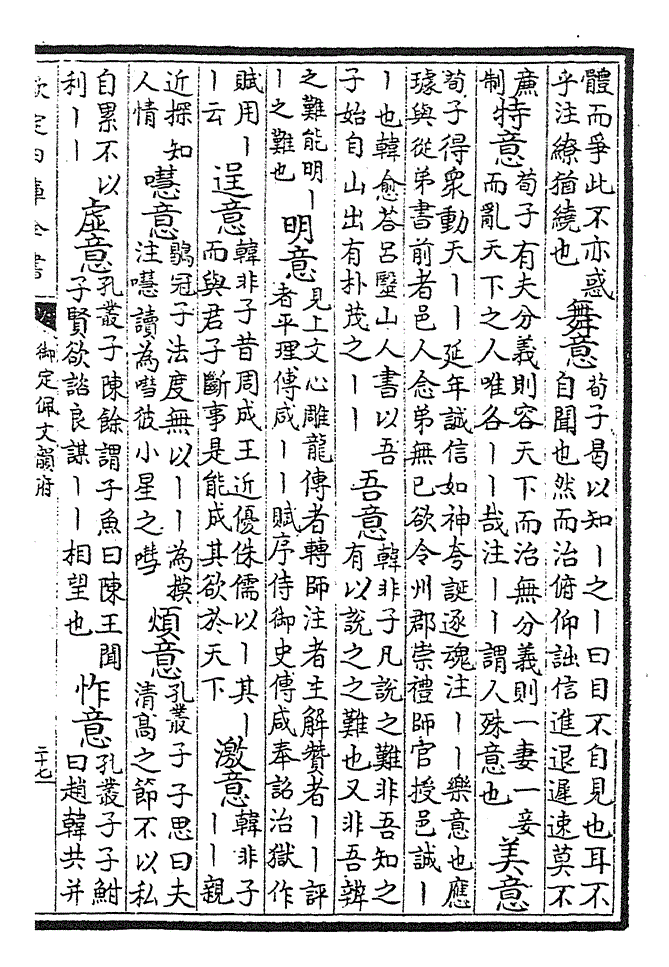 體而爭此不亦惑
乎注繚猶繞也
舞意
荀子曷以知丨之丨曰目不自見也耳不
自聞也然而治俯仰詘信進退遲速莫不
廉
制
特意
荀子有夫分義則容天下而治無分義則一妻一妾
而亂天下之人唯各丨丨哉注丨丨謂人殊意也
美意
荀子得衆動天丨丨延年誠信如神夸誕逐魂注丨丨樂意也應
璩與從弟書前者邑人念弟無已欲令州郡崇禮師官授邑誠丨
丨也韓愈荅呂毉山人書以吾
子始自山出有朴茂之丨丨
吾意
韓非子凡說之難非吾知之
有以說之之難也又非吾辯
之難能明丨
丨之難也
明意
見上文心雕龍傳者轉師注者主解贊者丨丨評
者平理傅咸丨丨賦序侍御史傅咸奉詔治獄作
賦用丨
丨云
逞意
韓非子昔周成王近優侏儒以丨其丨
而與君子斷事是能成其欲於天下
激意
韓非子
丨丨親
近探知
人情
嚖意
鶡冠子法度無以丨丨為摸
注嚖讀為嘒彼小星之嘒
煩意
孔叢子子思曰夫
清高之節不以私
自累不以
利丨丨
虛意
孔叢子陳餘謂子魚曰陳王聞
子賢欲諮良謀丨丨相望也
怍意
孔叢子子鮒
曰趙韓共并
欽定四庫全書
御定佩文韻府
二十七